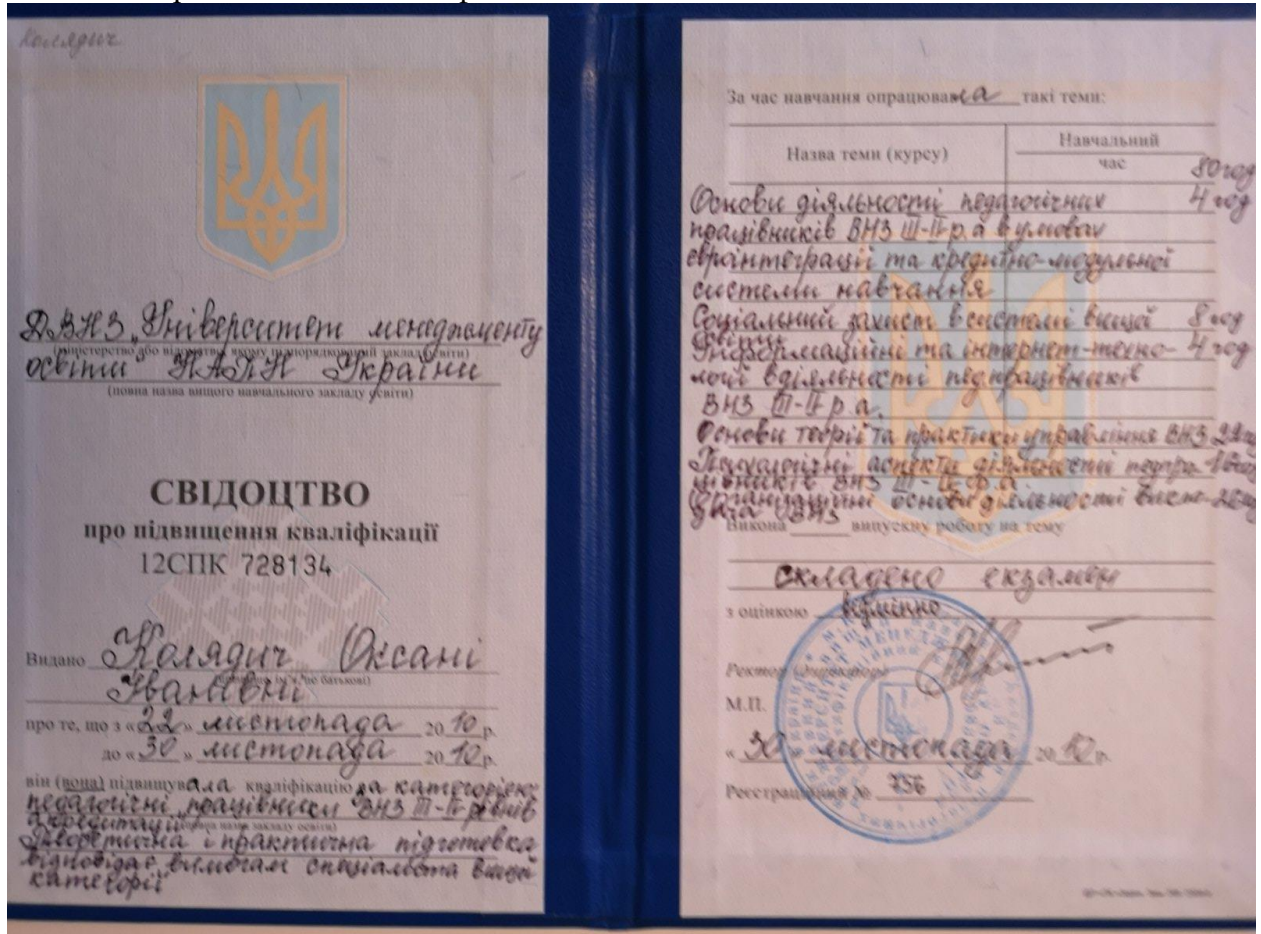 Колядич
ДВНЗ „Університет менеджменту
(міністерство або відомство, якому підпорядкований заклад освіти)
освіти" НАПН України
(повна назва вищого навчального закладу освіти)
СВІДОЦТВО
про підвищення кваліфікації
12СПК 728134
Видано Колядич Оксані
(прізвище, ім'я, по батькові)
Іванівні
про те, що з «22» листопада 2010 р.
до «30» листопада 2010 р.
він (вона) підвищувала кваліфікацію за категорією
педагогічні працівники ВНЗ III-IV рівнів
акредитації
(повна назва закладу освіти)
Теоретична і практична підготовка
відповідає вимогам спеціаліста вищої
категорії
За час навчання опрацювала такі теми:
Назва теми (курсу) Навчальний
час 80 год
Основи діяльності педагогічних 4 год
працівників ВНЗ III-IV р.а в умовах
євроінтеграції та кредитно-модульної
системи навчання
Соціальний захист в системі вищої 8 год
освіти
Інформаційні та інтернет-техно- 4 год
логії в діяльності педпрацівників
ВНЗ III-IV р.а.
Основи теорії та практики управління ВНЗ
Психологічні аспекти діяльності педпра-
цівників ВНЗ III-IV р.а
Організаційні основи діяльності викла-
дача ВНЗ
Викона випускну роботу на тему
складено екзамен
з оцінкою відмінно
Ректор (директор)
М.П.
«30» листопада 2010 р.
Реєстраційний № 756